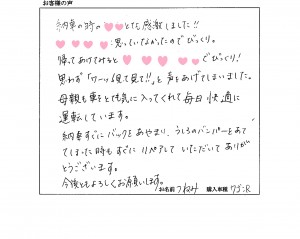 お客様の声
納車の時の とても感激しました!!
思っていなかったのでびっくり。
帰ってあけてみると でびっくり!
思わず「ワーッ!見て見て!!」と声をあげてしまいました。
母親も車をとても気に入ってくれて毎日快適に
運転しています。
納車すぐにバックをあやまり、うしろのバンパーをあて
てしまった時もすぐにリペアしていただいてありが
とうございます。
今後ともよろしくお願いします。
お名前 つねみ 購入車種 ワゴンR